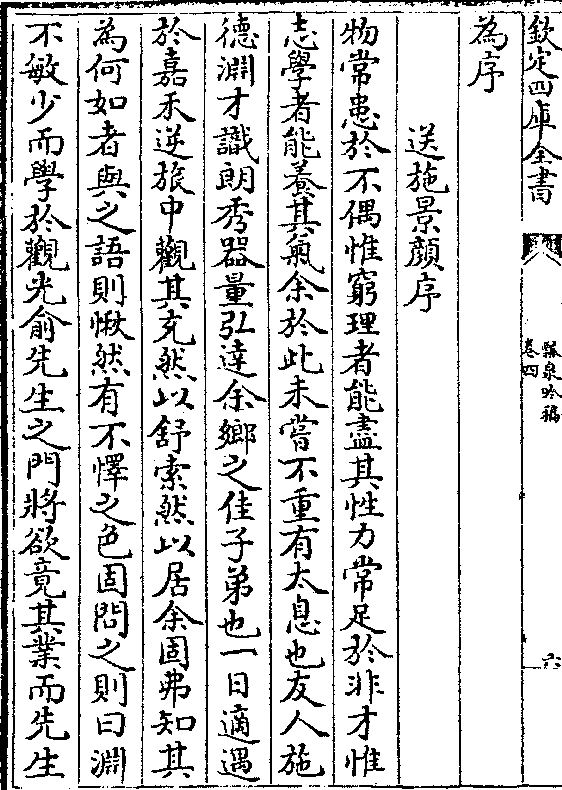 欽定四庫全書
瓢泉吟稿
卷四
六
為序
送施景顔序
物常患於不偶惟窮理者能盡其性力常足於非才惟
志學者能養其氣余於此未嘗不重有太息也友人施
德淵才識朗秀器量弘達余鄉之佳子弟也一日適遇
於嘉禾逆旅中觀其充然以舒索然以居余固弗知其
為何如者與之語則愀然有不懌之色固問之則曰淵
不敏少而學於觀光俞先生之門將欲竟其業而先生